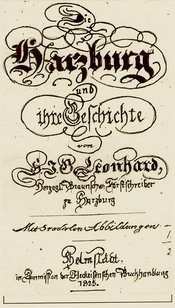 Die
Harzburg
und
ihre Geschichte
von
Leonhard,
Herzogl. Braunschw. Forstschreiber
zu Harzburg
Mit Abbildungen
Helmstädt.
in Commission der Fleckeisenschen Buchhandlung
1825.